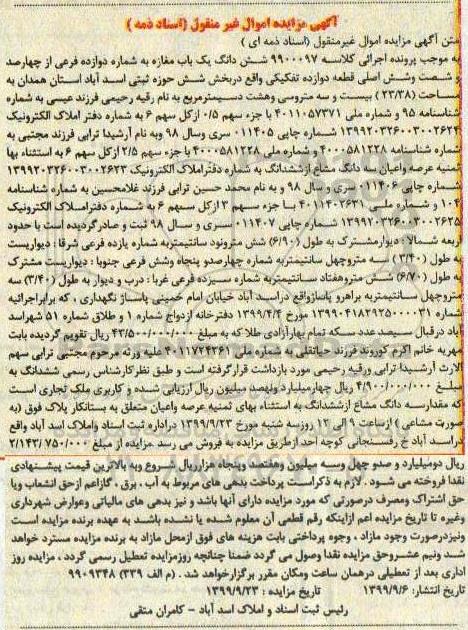 آگهی مزایده اموال غیر منقول (اسناد ذمه )
متن آگهی مزایده اموال غیرمنقول (اسناد ذمه ای )
به موجب پرونده اجرائی کلاسه ۹۹۰۰۰۹۷ شش دانگ یک باب مغازه به شماره دوازده فرعی از چهارصد
و شصت وشش اصلی قطعه دوازده تفکیکی واقع دربخش شش حوزه ثبتی اسد آباد استان همدان به
مساحت (۲۳/۳۸) بیست و سه متروسی وهشت دسیمترمربع به نام رقیه رحیمی فرزند عیسی به شماره
شناسنامه ۹۵ و شماره ملی ۴۰۱۱۰۵۷۳۷۱ با جزء سهم ۰/۵ ازکل سهم ۶ به شماره دفتر املاک الکترونیک
۱۳۹۹۲۰۳۲۶۰۰۳۰۰۲۶۲۴ شماره چاپی ۰۱۱۴۰۵ سری وسال ۹۸ وبه نام آرشیدا ترابی فرزند مجتبی به
شماره شناسنامه ۴۰۰۰۵۸۱۲۲۸ و شماره ملی ۴۰۰۰۵۸۱۲۲۸ با جزء سهم ۲/۵ ازکل سهم ۶ به استثناء بها
ثمنیه عرصه واعیان سه دانگ مشاع ازششدانگ به شماره دفتراملاک الکترونیک ۱۳۹۹۲۰۳۲۶۰۰۳۰۰۲۶۲۳
شماره چاپی ۰۱۱۴۰۶ سری و سال ۹۸ و به نام محمد حسین ترابی فرزند غلامحسین به شماره شناسنامه
۱۰۴ و شماره ملی ۴۰۱۱۴۰۲۶۲۱ با جزء سهم ۳ ازکل سهم ۶ به شماره دفتراملاک الکترونیک
۱۳۹۹۲۰۳۲۶۰۰۳۰۰۲۶۲۵ شماره چاپی ۰۱۱۴۰۷ سری و سال ۹۸ ثبت و صادرگردیده است با حدود
اربعه شمالا : دیوارمشترک به طول (۶/۹۰) شش مترونود سانتیمتربه شماره یازده فرعی شرقا : دیواریست
به طول (۳/۴۰) سه متروچهل سانتیمتربه شماره چهارصدو پنجاه وشش فرعی جنوبا : دیواریست مشترک
به طول (۶/۷۰) شش متروهفتاد سانتیمتربه شماره سیزده فرعی غربا : درب و دیوار به طول (۳/۴۰) سه
متروچهل سانتیمتربه براهرو پاساژواقع دراسد آباد خیابان امام خمینی پاساژ نگهداری ، که برابراجرائیه
شماره ۱۳۹۹۰۴۱۸۲۹۲۵۰۰۰۰۳۱ مورخ ۱۳۹۹/۴/۴ دفترخانه ازدواج شماره ۱ و طلاق شماره ۵۱ شهراسد
آباد درقبال سیصد عدد سکه تمام بهارآزادی طلا که به مبلغ ۴۳/۵۰۰/۰۰۰/۰۰۰ ریال تقویم گردیده بابت
مهریه خانم اکرم کوروند فرزند حیاتقلی به شماره ملی ۴۰۱۱۷۲۴۲۶۱ علیه ورثه مرحوم مجتبی ترابی سهم
الارث آرشیدا ترابی ورقیه رحیمی مورد بازداشت قرارگرفته است و طبق نظرکارشناس رسمی ششدانگ به
مبلغ ۴/۹۰۰/۰۰۰/۰۰۰ ریال چهارمیلیارد ونهصد میلیون ریال ارزیابی شده و کاربری ملک تجاری است
که مقدارسه دانگ مشاع ازششدانگ به استثناء بهای ثمنیه عرصه واعیان متعلق به بستانکار پلاک فوق (به
صورت مشاعی ) ازساعت ۹ الی ۱۲ روزسه شنبه مورخ ۱۳۹۹/۹/۲۳ دراداره ثبت اسناد واملاک اسد آباد واقع
دراسد آباد خ رفسنجانی کوچه احد ازطریق مزایده به فروش می رسد .مزایده از مبلغ ۲/۱۴۳/۷۵۰/۰۰۰
ریال دومیلیارد و صدو چهل وسه میلیون وهفتصد وپنجاه هزارریال شروع وبه بالاترین قیمت پیشنهادی
نقدا فروخته می شود . لازم به ذکراست پرداخت بدهی های مربوط به آب ، برق ، گازاعم ازحق انشعاب ویا
حق اشتراک ومصرف درصورتی که مورد مزایده دارای آنها باشد و نیز بدهی های مالیاتی وعوارض شهرداری
وغیره تا تاریخ مزایده اعم ازاینکه رقم قطعی آن معلوم شده یا نشده باشد به عهده برنده مزایده است
ونیزدرصورت وجود مازاد ، وجوه پرداختی بابت هزینه های فوق ازمحل مازاد به برنده مزایده مسترد خواهد
شد ونیم عشروحق مزایده نقدا وصول می گردد ضمنا چنانچه روزمزایده تعطیل رسمی گردد ، مزایده روز
اداری بعد از تعطیلی درهمان ساعت ومکان مقرر برگزارخواهد شد . (م الف ۳۳۹) ۹۹۰۹۳۴۸
تاریخ انتشار: ۱۳۹۹/۹/۶ تاریخ مزایده : ۱۳۹۹/۹/۲۳
رئیس ثبت اسناد و املاک اسد آباد - کامران متقی